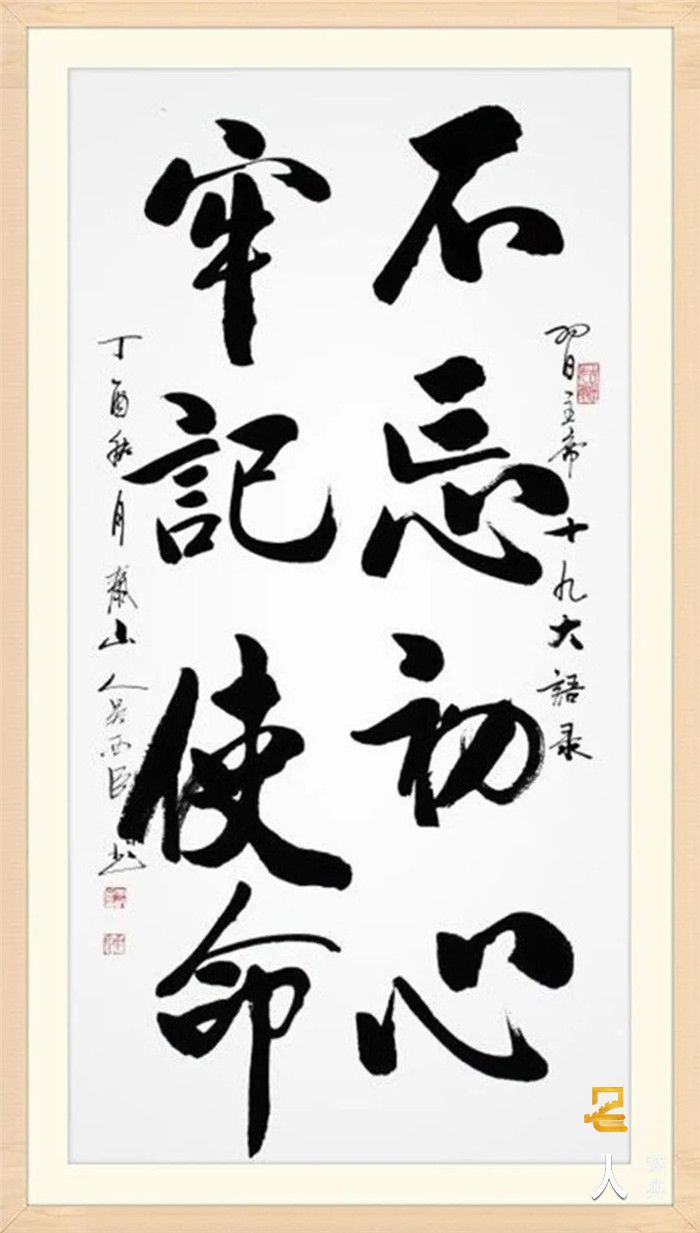 習主席十九大語录
不忘初心
牢記使命
丁酉秋月山人吴西臣
名人
辞典